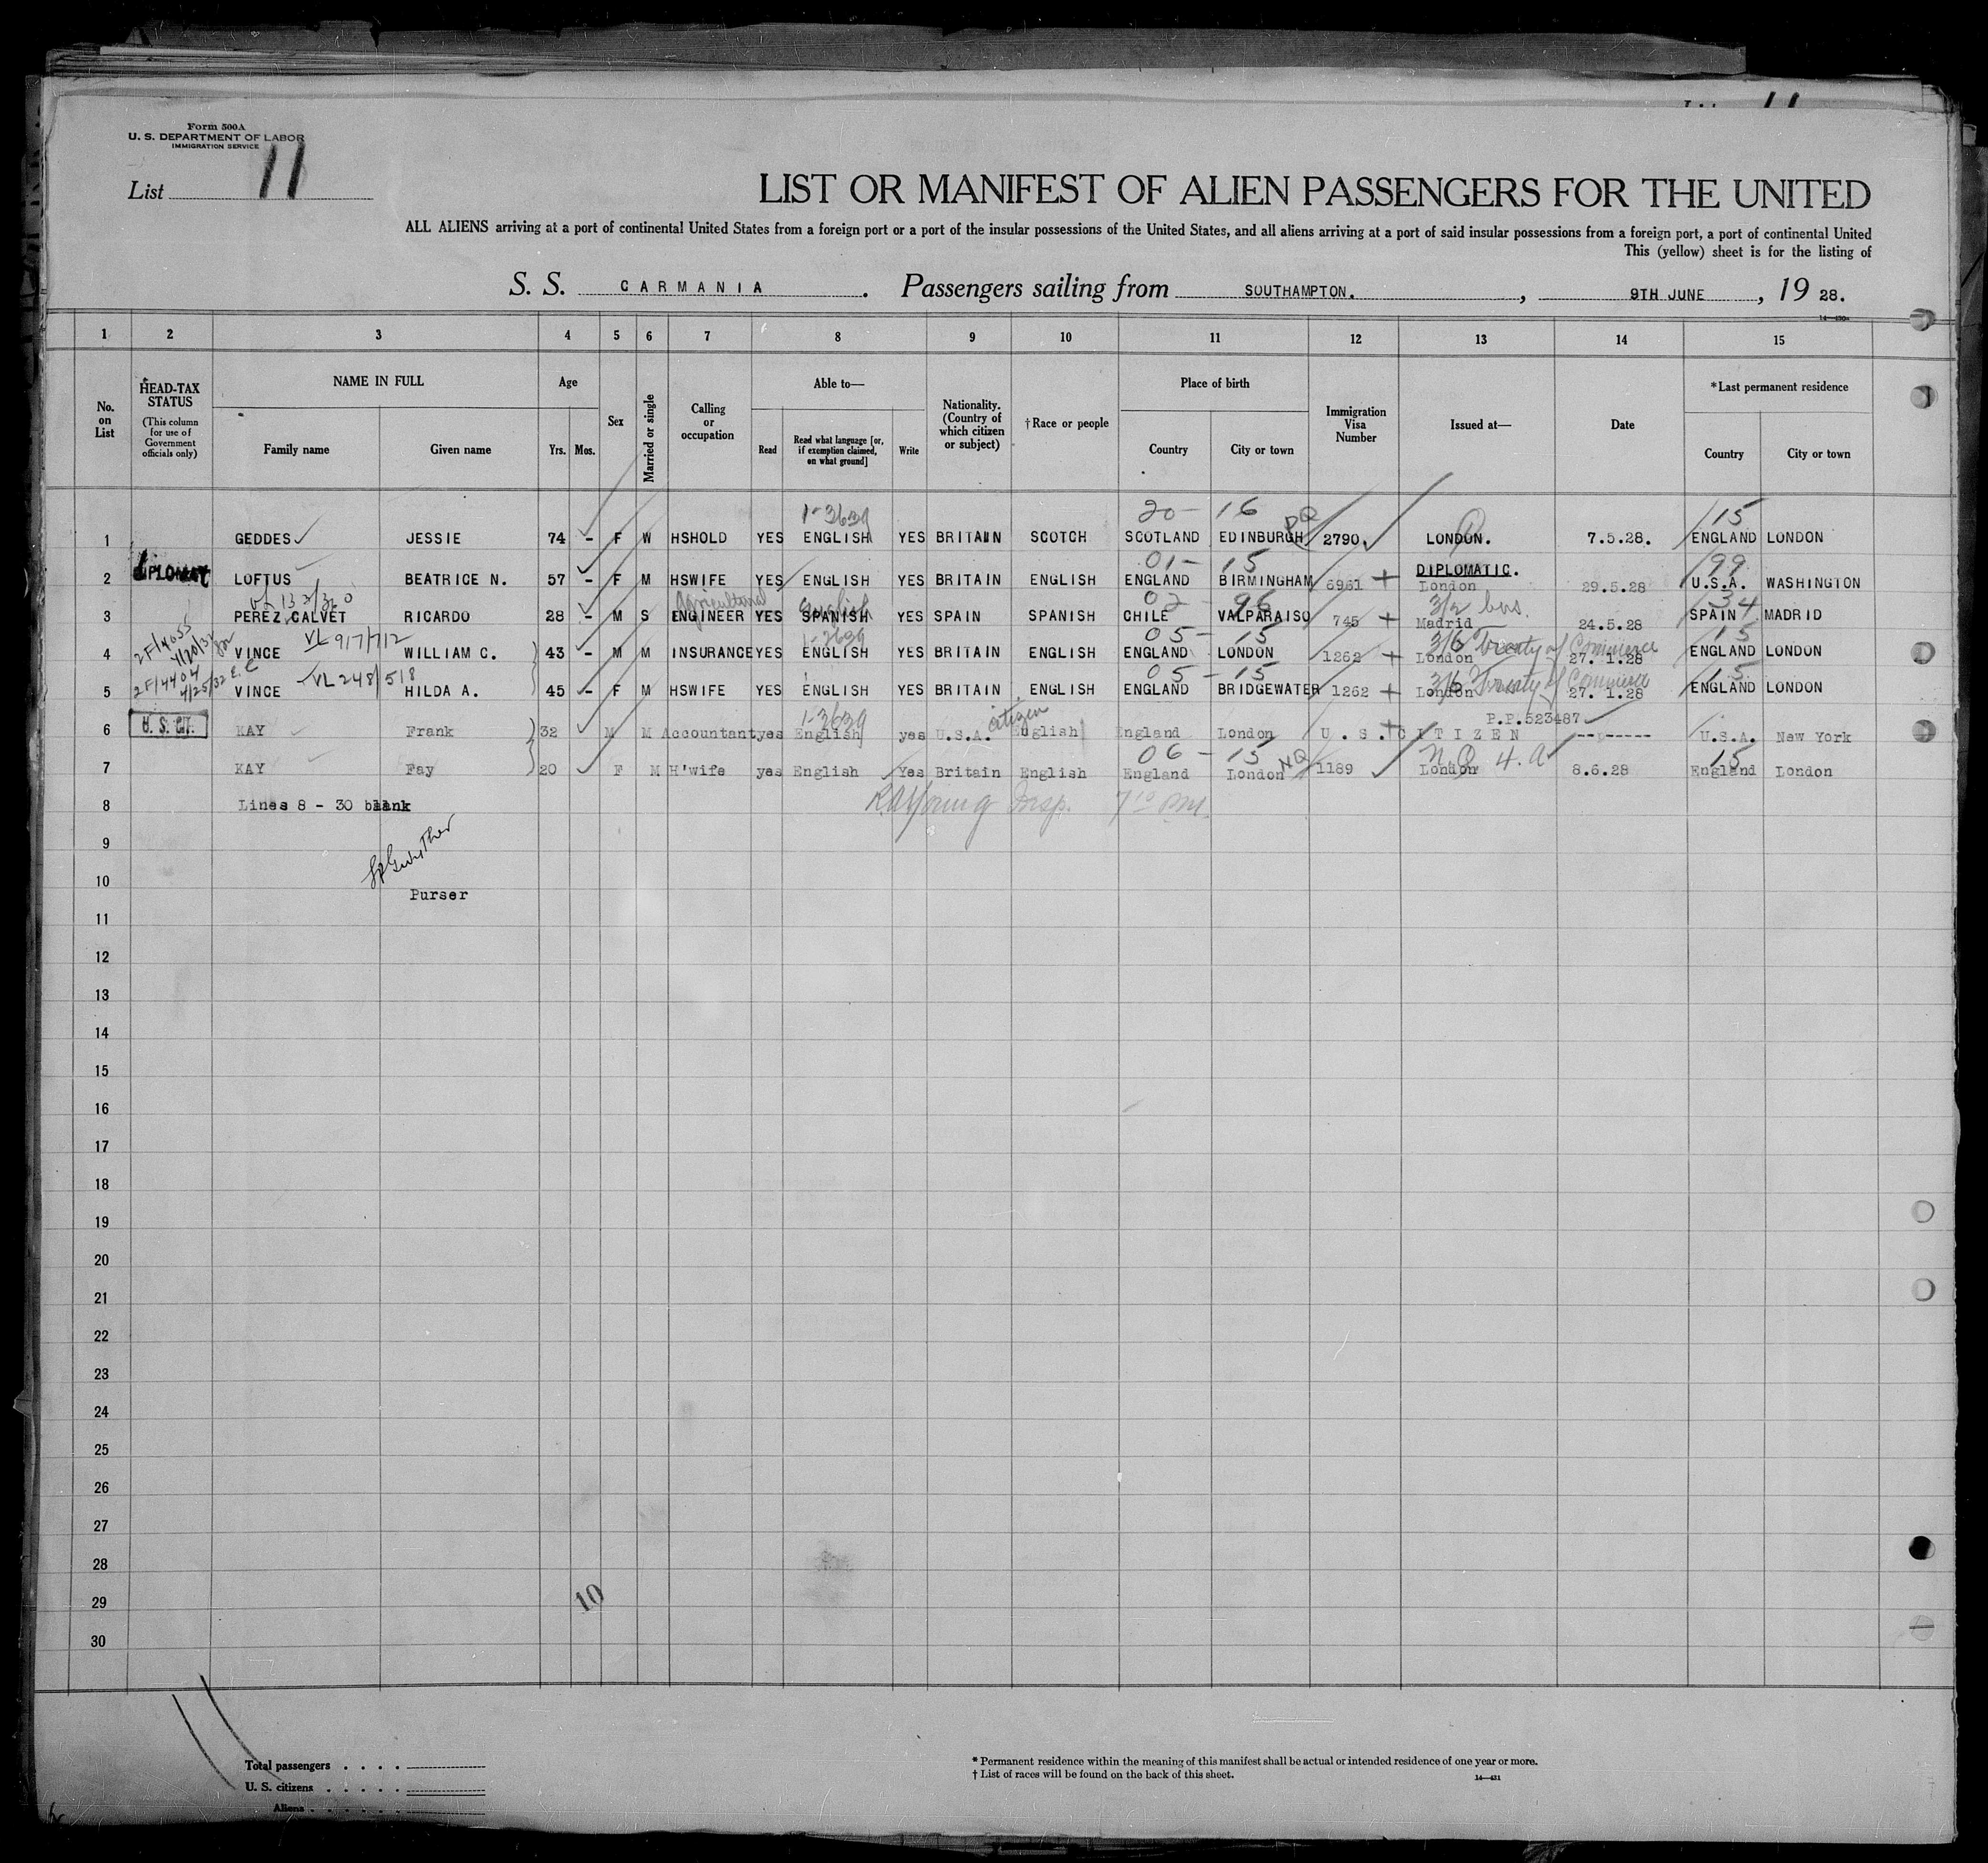 Form 500A
U. S. DEPARTMENT OF LABOR
IMMIGRATION SERVICE
List 11
LIST OR MANIFEST OF ALIEN PASSENGERS FOR THE UNITED
ALL ALIENS arriving at a port of continental United States from a foreign port or a port of the insular possessions of the United States, and all aliens arriving at a port of said insular possessions from a foreign port, a port of continental United
This (yellow) sheet is for the listing of
S. S. CARMANIA. Passengers sailing from SOUTHAMPTON., 9TH JUNE, 19 28.
1 2 3 4 5 6 7 8 9 10 11 12 13 14 15
No. on List
HEAD-TAX STATUS
(This column for use of Government officials only)
NAME IN FULL
Family name Given name
Age
Yrs. Mos.
Sex
Married or single
Calling or occupation
Able to—
Read
Read what language [or, if exemption claimed, on what ground]
Write
Nationality. (Country of which citizen or subject)
†Race or people
Place of birth
Country City or town
Immigration Visa Number
Issued at—
Date
*Last permanent residence
Country City or town
1-3639 20- 16 PQ 15
1 GEDDES JESSIE 74 - F W HSHOLD YES ENGLISH YES BRITAIN SCOTCH SCOTLAND EDINBURGH 2790 LONDON. 7.5.28. ENGLAND LONDON
01- 15 99
2 DIPLOMAT LOFTUS BEATRICE N. 57 - F M HSWIFE YES ENGLISH YES BRITAIN ENGLISH ENGLAND BIRMINGHAM 6961 DIPLOMATIC. London 29.5.28 U.S.A. WASHINGTON
Agricultural English 02 - 96 3/2 bus. 34
3 PEREZ CALVET RICARDO 28 - M S ENGINEER YES SPANISH YES SPAIN SPANISH CHILE VALPARAISO 745 Madrid 24.5.28 SPAIN MADRID
2F/4055 VL 917/712 1-3639 05- 15 3/6 Treaty of Commerce 15
4 VINCE WILLIAM C. 43 - M M INSURANCE YES ENGLISH YES BRITAIN ENGLISH ENGLAND LONDON 1262 London 27. 1.28 ENGLAND LONDON
2F/4404 4/25/32 VL 248/518 05 - 15 3/6 Treaty of Commerce 15
5 VINCE HILDA A. 45 - F M HSWIFE YES ENGLISH YES BRITAIN ENGLISH ENGLAND BRIDGEWATER 1262 London 27. 1.28 ENGLAND LONDON
1-3639 citizen P.P.523487
6 U. S. CIT. KAY Frank 32 M M Accountant yes English yes U.S.A. English England London U. S. CITIZEN ------- U.S.A. New York
06 - 15 NQ N.Q 4.a 15
7 KAY Fay 20 F M H'wife yes English Yes Britain English England London 1189 London 8.6.28 England London
8 Lines 8 - 30 blank Insp. 7 10 PM.
9
10
Purser
11
12
13
14
15
16
17
18
19
20
21
22
23
24
25
26
27
28
29 10
30
Total passengers . . . .
U. S. citizens . . . . .
Aliens . . . . . .
* Permanent residence within the meaning of this manifest shall be actual or intended residence of one year or more.
† List of races will be found on the back of this sheet.
14—431